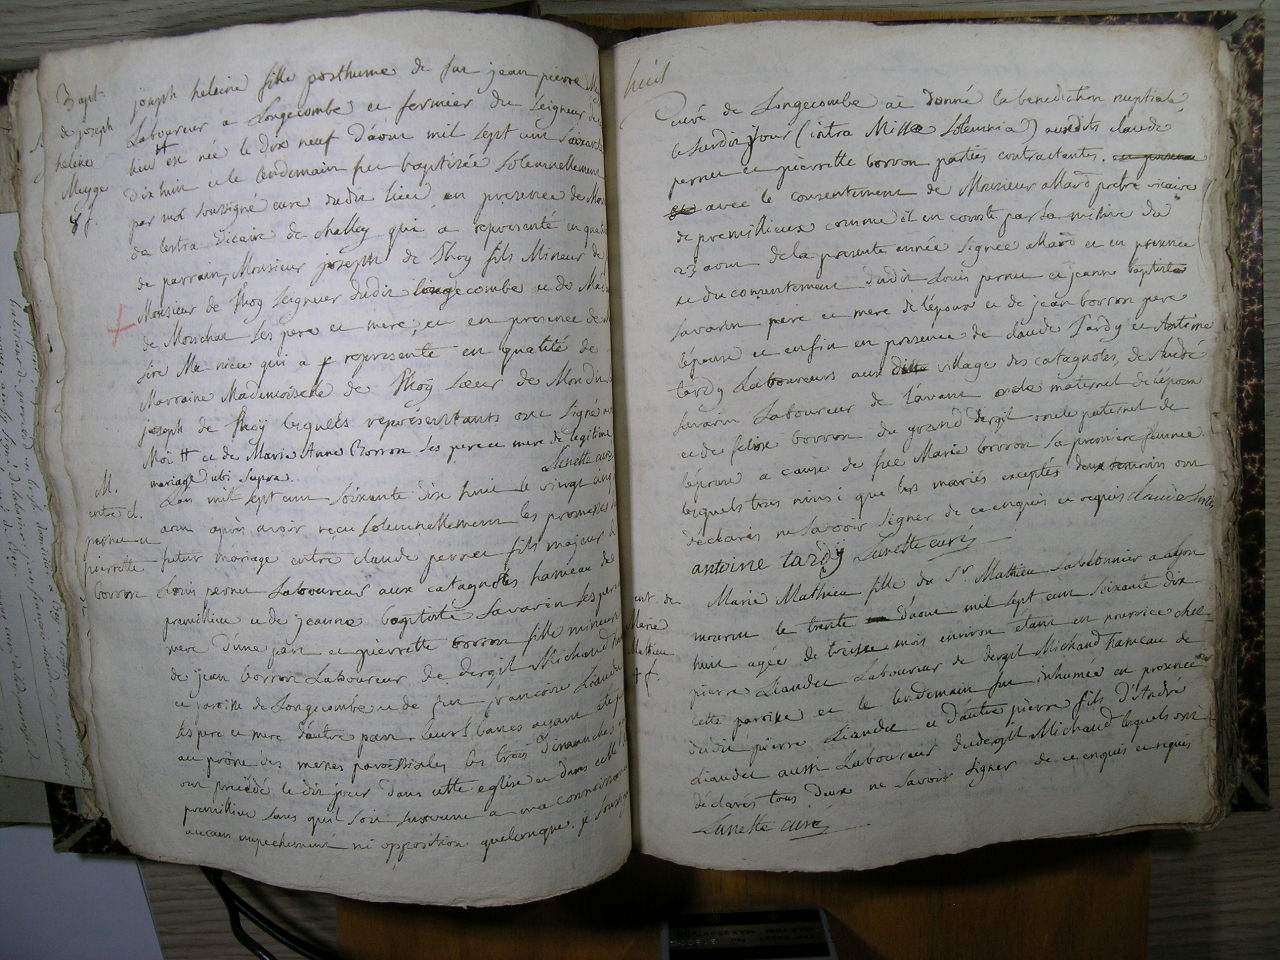 Bapt.
de joseph
heleine
Mugge
8 f.
joseph heleine fille posthume de feu jean pierre
Laboureur a Longecombe et fermier du Seigneur du
lieu # est née le dix neuf d'aout mil sept cent soixante
dix huit et le lendemain fut baptisée solennellement
par moi soussigné curé dudit lieu, en presence de
de lestra vicaire de challey qui a representé en qualité
de parrain, Monsieur joseph de Thoy fils Mineur de
Monsieur de Thoy Seigneur dudit longecombe et de
de Morichat ses pere et mere; et en presence de
sire Me niece qui a representé en qualité de
Marraine Mademoiselle de Thoy sœur de Mondit
joseph de Thoy lesquels representants ont signé
Moi # et de Marie Anne Borron ses pere et mere de legitime
mariage ubi supra. Lunette curé
M.
entre cl.
pernet et
pierrette
borron
L'an mil sept cent soixante dix huit le vingt cinq
aout après avoir reçu solennellement les promesses
futur mariage entre claude pernet fils majeur de
Louis pernet Laboureur aux catagnoles hameau de
premillieu et de jeanne baptiste Savarin ses pere
mere d'une part et pierrette borron fille mineure
de jean borron Laboureur de dergil Michaud
et paroisse de Longecombe et de feue françoise Liaudet
ses pere et mere d'autre part. leurs bancs ayant été
au prône des messes paroissiales les trois dimanches
ont précédé le dit jour dans cette eglise et dans celle de
premillieu sans qu'il soit survenu a ma connoissance
aucun empechement ni opposition quelconque. je soussigné
huit
curé de Longecombe ai donné la benediction nuptiale
le susdit jour (intra Missæ solemnia) auxdits claude
pernet et pierrette borron parties contractantes.
avec le consentement de Monsieur Maré prêtre vicaire
de premillieux comme il en conste par la missive du
23 aout de la presente année signée Maré et en presence
et du consentement dudit Louis pernet et jeanne baptiste
Savarin pere et mere de l'époux et de jean borron pere
lepouse et enfin en presence de claude Tardy et Antoine
tardy Laboureurs aux village des catagnoles, de André
Savarin Laboureur de l'avant oncle maternel de l'époux
et de felix borron du grand dergil oncle paternel de
lépouse a cause de feue Marie borron sa premiere femme
lesquels tous ainsi que les mariés exceptés deux temoins ont
déclarés ne savoir signer de ce enquis et requis Claude tardy
antoine tardy Lunette curé
ent. de
Marie
Mathieu
4 f.
Marie Mathieu fille du Sr Mathieu Labolonnier a Lyon
mourut le trente d'aout mil sept cent soixante dix
huit agée de treize mois environ étant en nourrice chez
pierre Liaudet Laboureur de dergil Michaud hameau de
cette paroisse et le lendemain fut inhumée en presence
dudit pierre Liaudet et d'autre pierre fils d'André
Liaudet aussi Laboureur dudergil Michaud lesquels ont
déclarés tous deux ne savoir signer de ce enquis et requis
Lunette curé